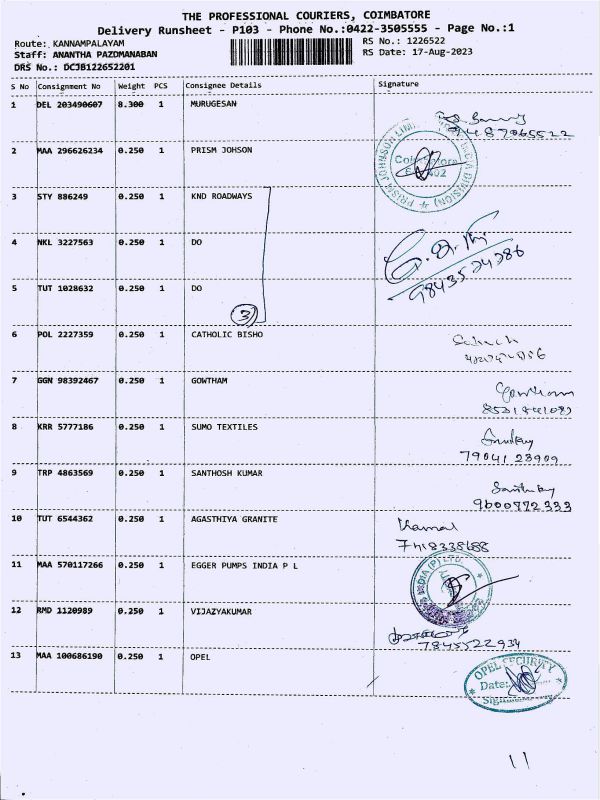 THE PROFESSIONAL COURIERS, COIMBATORE
Delivery Runsheet - P103 - Phone No.:0422-3505555 - Page No.:1
Route: KANNAMPALAYAM RS No.: 1226522
Staff: ANANTHA PAZDMANABAN RS Date: 17-Aug-2023
DRS No.: DCJB122652201
S No Consignment No Weight PCS Consignee Details Signature
1 DEL 203490607 8.300 1 MURUGESAN
9487065522
2 MAA 296626234 0.250 1 PRISM JOHSON
PRISM JOHNSON LIMITED
Coimbatore
3 STY 886249 0.250 1 KND ROADWAYS
4 NKL 3227563 0.250 1 DO
5 TUT 1028632 0.250 1 DO
9843524286
3
6 POL 2227359 0.250 1 CATHOLIC BISHO
7 GGN 98392467 0.250 1 GOWTHAM
Gowtham
8 KRR 5777186 0.250 1 SUMO TEXTILES
7904123909
9 TRP 4863569 0.250 1 SANTHOSH KUMAR
9600772333
10 TUT 6544362 0.250 1 AGASTHIYA GRANITE
Kamal
7418338688
11 MAA 570117266 0.250 1 EGGER PUMPS INDIA P L
INDIA (P) LTD
12 RMD 1120989 0.250 1 VIJAZYAKUMAR
7845522934
13 MAA 100686190 0.250 1 OPEL
OPEL SECURITY
Date:
11